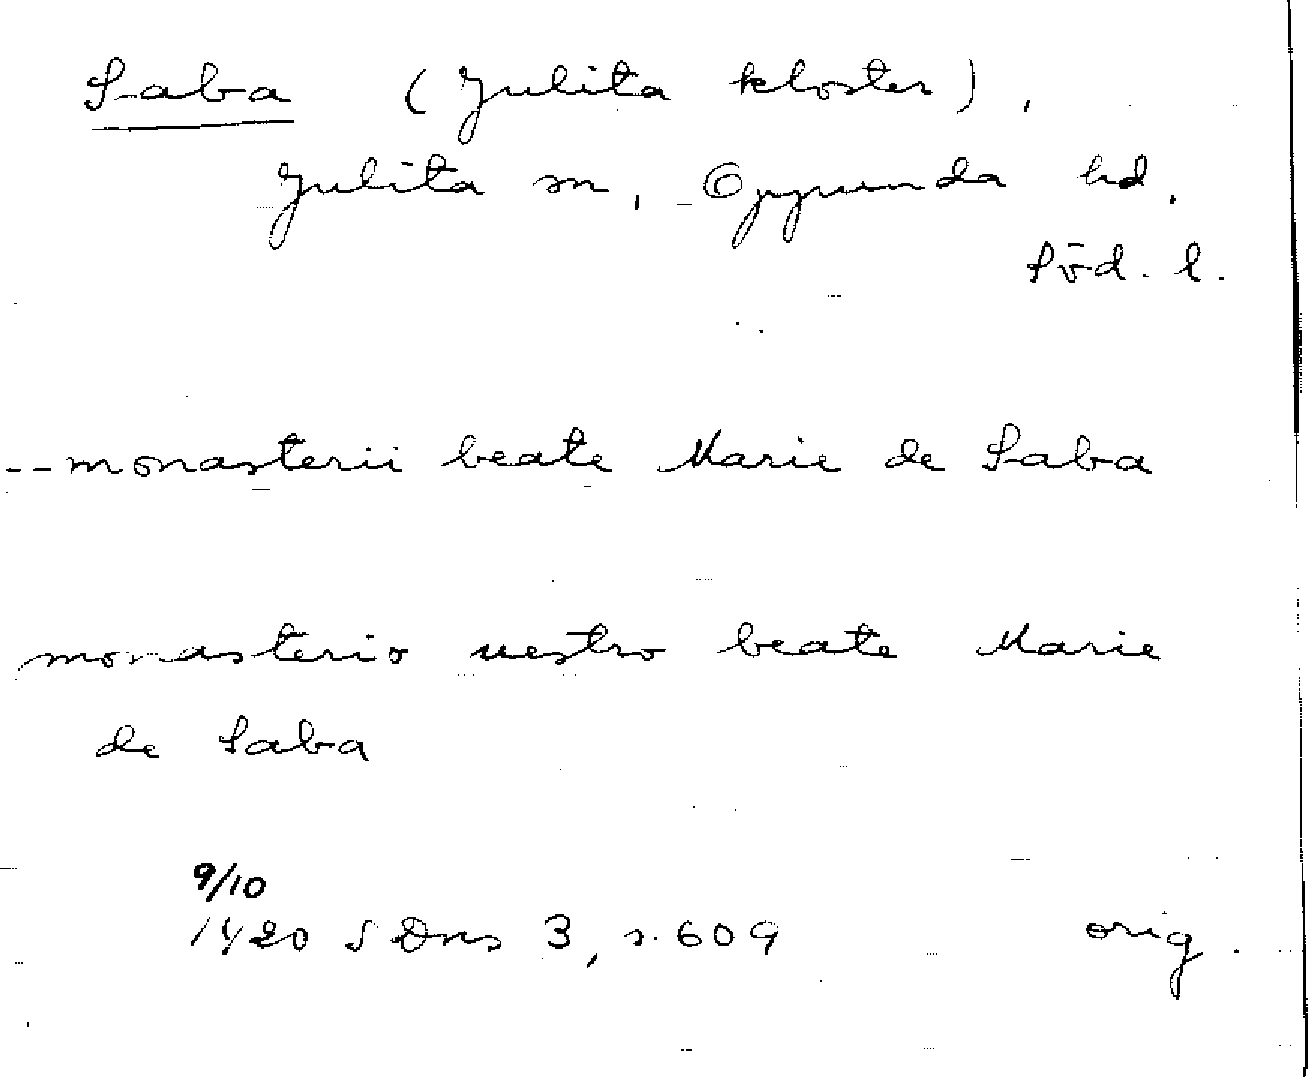 Saba (Julita kloster).
Julita sn, Oppunda hd.
Söd. l.
-- monasterii beate Marie de Saba
monasterio nestro beate Marie
de Saba
9/10
1420 SDns 3, s. 609 orig.